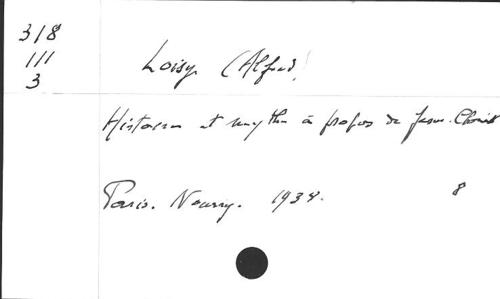 318
111
3
Loisy (Alfred)
Histoire et mythe à propos de Jesus-Christ
Paris. Nourry. 1938. 8